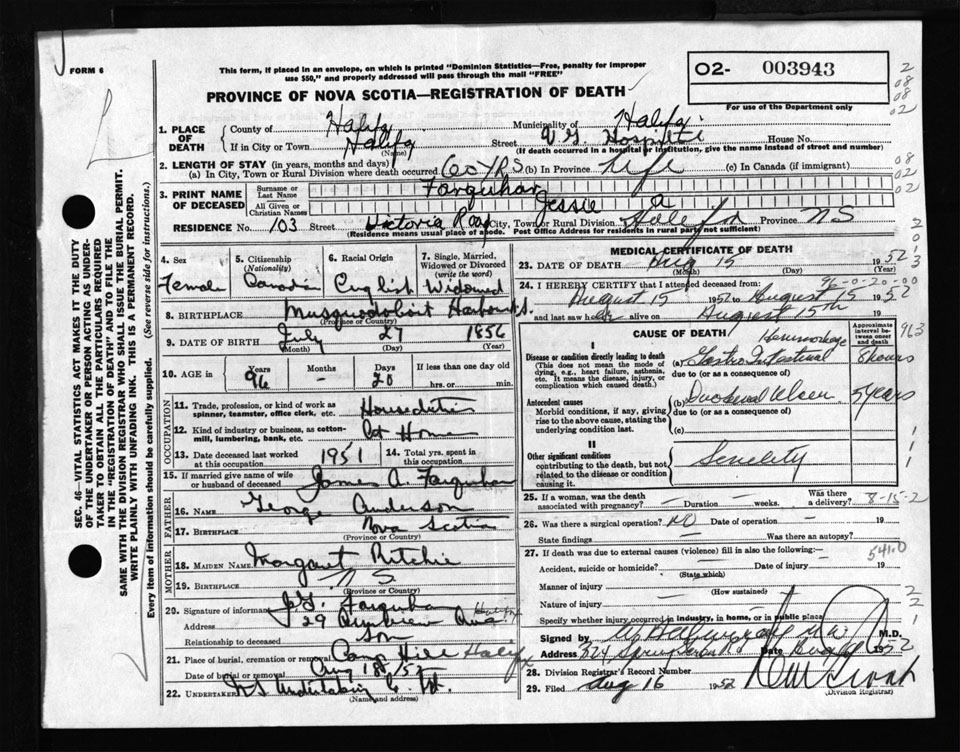 FORM 6
This form, if placed in an envelope, on which is printed "Dominion Statistics—Free, penalty for improper
use $50," and properly addressed will pass through the mail "FREE"
PROVINCE OF NOVA SCOTIA—REGISTRATION OF DEATH
O2- 003943
For use of the Department only
2
08
08
02
SEC. 46—VITAL STATISTICS ACT MAKES IT THE DUTY
OF THE UNDERTAKER OR PERSON ACTING AS UNDER-
TAKER TO OBTAIN ALL THE PARTICULARS REQUIRED
IN THE "REGISTRATION OF DEATH" AND TO FILE THE
SAME WITH THE DIVISION REGISTRAR WHO SHALL ISSUE THE BURIAL PERMIT.
WRITE PLAINLY WITH UNFADING INK. THIS IS A PERMANENT RECORD.
Every item of information should be carefully supplied. (See reverse side for instructions.)
1. PLACE OF DEATH
County of Halifax Municipality of Halifax
If in City or Town Halifax (Name) Street V G. Hospital House No.
(If death occurred in a hospital or institution, give the name instead of street and number)
2. LENGTH OF STAY (in years, months and days)
(a) In City, Town or Rural Division where death occurred 60 YRS (b) In Province Life (c) In Canada (if immigrant)
08
02
3. PRINT NAME OF DECEASED
Surname or Last Name Farquhar
All Given or Christian Names Jessie A
RESIDENCE No. 103 Street Victoria Road City, Town or Rural Division Halifax Province N S
(Residence means usual place of abode. Post Office Address for residents in rural parts not sufficient)
4. Sex Female
5. Citizenship (Nationality) Canadian
6. Racial Origin English
7. Single, Married, Widowed or Divorced (write the word) Widowed
8. BIRTHPLACE Musquodoboit Harbour N.S.
(Province or Country)
9. DATE OF BIRTH July 27 1856
(Month) (Day) (Year)
10. AGE in Years 96 Months - Days 20 If less than one day hrs. or min.
OCCUPATION
11. Trade, profession, or kind of work as spinner, teamster, office clerk, etc. Housedutie
12. Kind of industry or business, as cotton-mill, lumbering, bank, etc. at Home
13. Date deceased last worked at this occupation 1951
14. Total yrs. spent in this occupation
15. If married give name of wife or husband of deceased James A. Farquhar
FATHER
16. Name George Anderson
17. Birthplace Nova Scotia
(Province or Country)
MOTHER
18. MAIDEN NAME Margaret Ritchie
19. BIRTHPLACE N S.
(Province or Country)
20. Signature of informant J.G. Farquhar
Address 29 Halifax
Relationship to deceased Son
21. Place of burial, cremation or removal Camp Hill Halifax
Date of burial or removal Aug 18 / 52
22. UNDERTAKER N S Undertaking Co. Ltd.
(Name and address)
MEDICAL CERTIFICATE OF DEATH
23. DATE OF DEATH Aug 15 1952
(Month) (Day) (Year)
24. I HEREBY CERTIFY that I attended deceased from: 96-0-20-00
August 15 1952 to August 15 1952
and last saw her alive on August 15th
2013
CAUSE OF DEATH
Approximate interval between onset and death
963
I
Disease or condition directly leading to death
(This does not mean the mode of dying, e.g., heart failure, asthenia, etc. It means the disease, injury, or complication which caused death.)
(a) Gastro Intestinal Hemorrhage 8 hours
due to (or as a consequence of)
Antecedent causes
Morbid conditions, if any, giving rise to the above cause, stating the underlying condition last.
(b) Duodenal Ulcer 5 years
due to (or as a consequence of)
(c)
II
Other significant conditions
contributing to the death, but not related to the disease or condition causing it.
Senility
1
1
1
25. If a woman, was the death associated with pregnancy? — Duration — weeks. Was there a delivery? 8-15-2
26. Was there a surgical operation? NO Date of operation — 19
State findings — Was there an autopsy?
27. If death was due to external causes (violence) fill in also the following:— 541.0
Accident, suicide or homicide? (State which) Date of injury 19
Manner of injury — (How sustained)
Nature of injury —
Specify whether injury occurred in industry, in home, or in public place
2
2
1
Signed by M.D.
Address 324 Spring Garden Rd Date 1952
28. Division Registrar's Record Number
29. Filed Aug 16 1952
(Division Registrar)